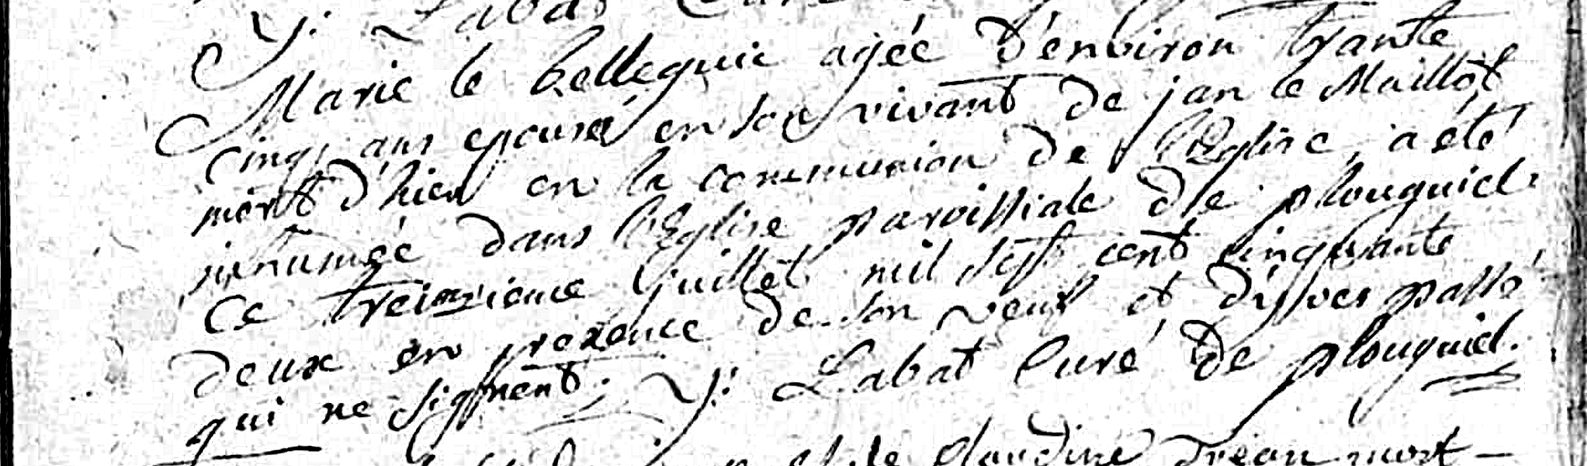 y: Labat Curé
Marie le belleguic agée d'environ trante
cinq ans epouse en son vivant de jan le Maillot
mort d'hier en la communion de l'Eglise, a été
inhumée dans l'Eglise paroissiale de plouguiel
ce treizieme juillet mil sept cent cinquante
deux en presence de son veuf et d'yves pasté
qui ne signent; y: Labat Curé de plouguiel.
claudine drean mort